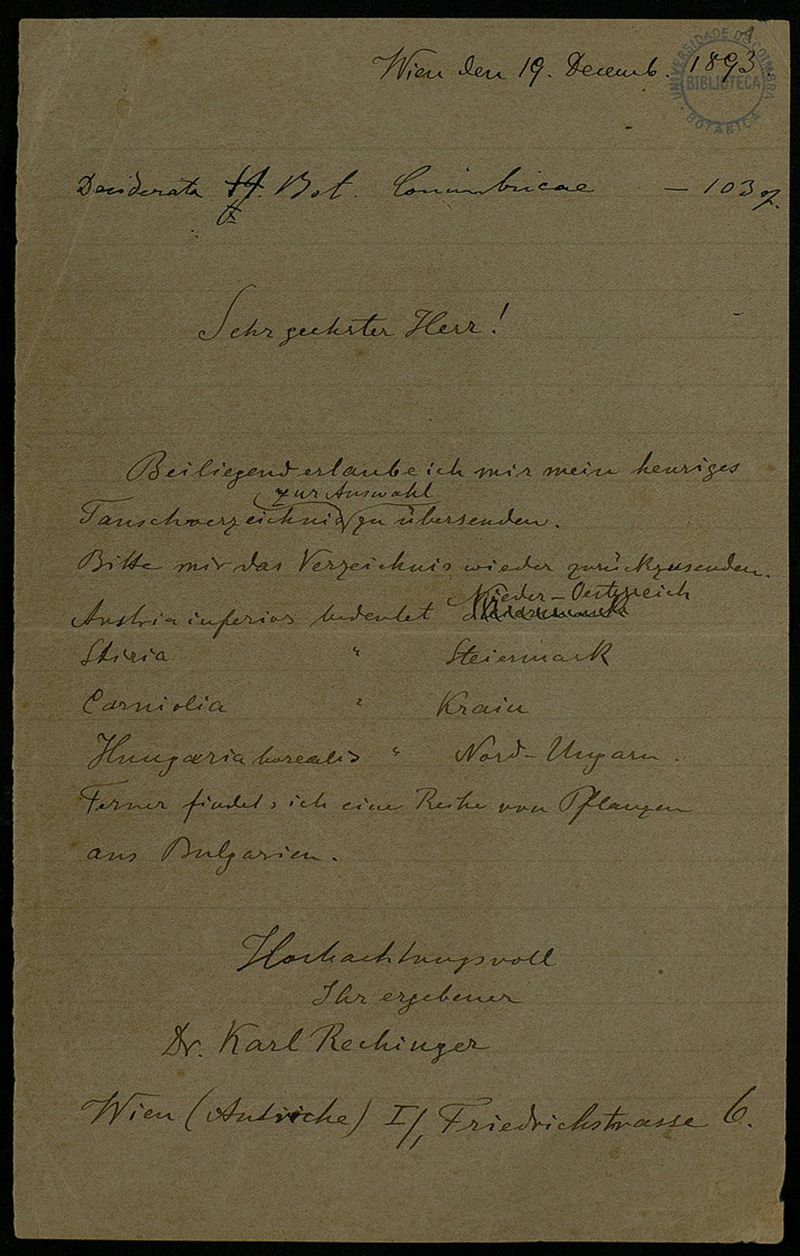 Wien den 19. Decemb. 1893.
UNIVERSIDADE DE COIMBRA
BIBLIOTECA
BOTANICA
Desiderata H. Bot. Conimbricae — 103
Sehr geehrter Herr!
Beiliegend erlaube ich mir mein heuriges
zur Auswahl
Tauschverzeichnis zu übersenden.
Bitte mir das Verzeichnis wieder zurückzusenden.
Austria inferior bedeutet Nieder-Oesterreich
Stiria " Steiermark
Carniolia " Krain
Hungaria borealis " Nord-Ungarn.
Ferner findet sich eine Reihe von Pflanzen
aus Bulgarien.
Hochachtungsvoll
Ihr ergebener
Dr. Karl Rechinger
Wien (Autriche) I/, Friedrichstrasse 6.